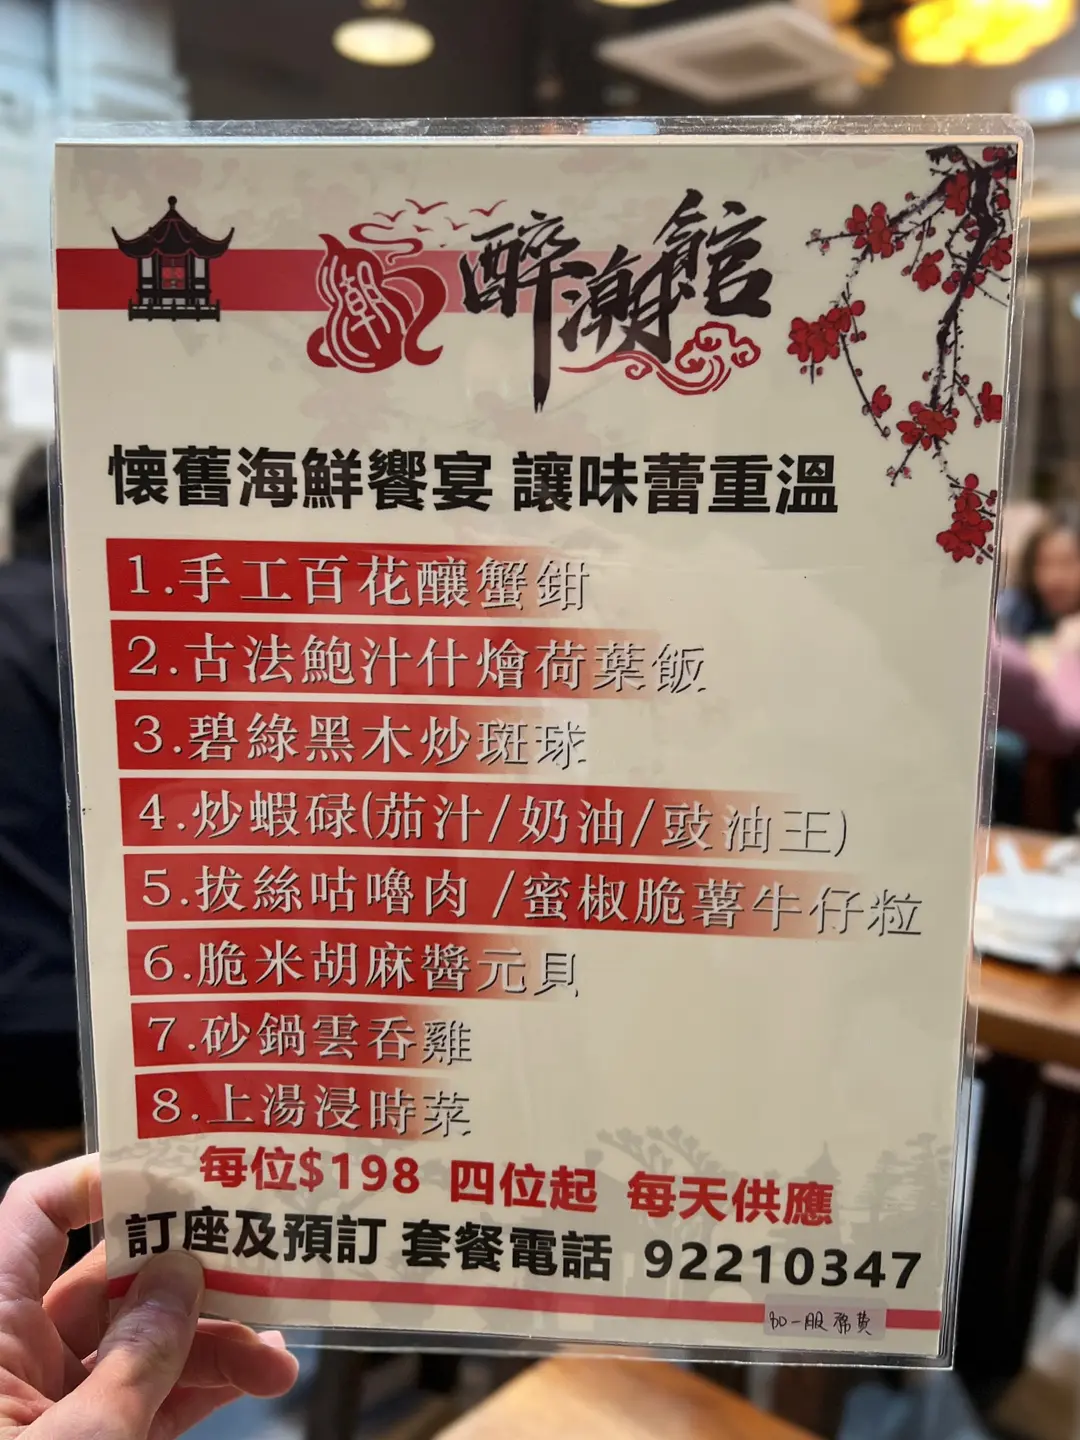 潮
醉潮館
懷舊海鮮饗宴 讓味蕾重溫
1.手工百花釀蟹鉗
2.古法鮑汁什燴荷葉飯
3.碧綠黑木炒斑球
4.炒蝦碌(茄汁/奶油/豉油王)
5.拔絲咕嚕肉 /蜜椒脆薯牛仔粒
6.脆米胡麻醬元貝
7.砂鍋雲吞雞
8.上湯浸時菜
每位$198 四位起 每天供應
訂座及預訂 套餐電話 92210347
加一服務費